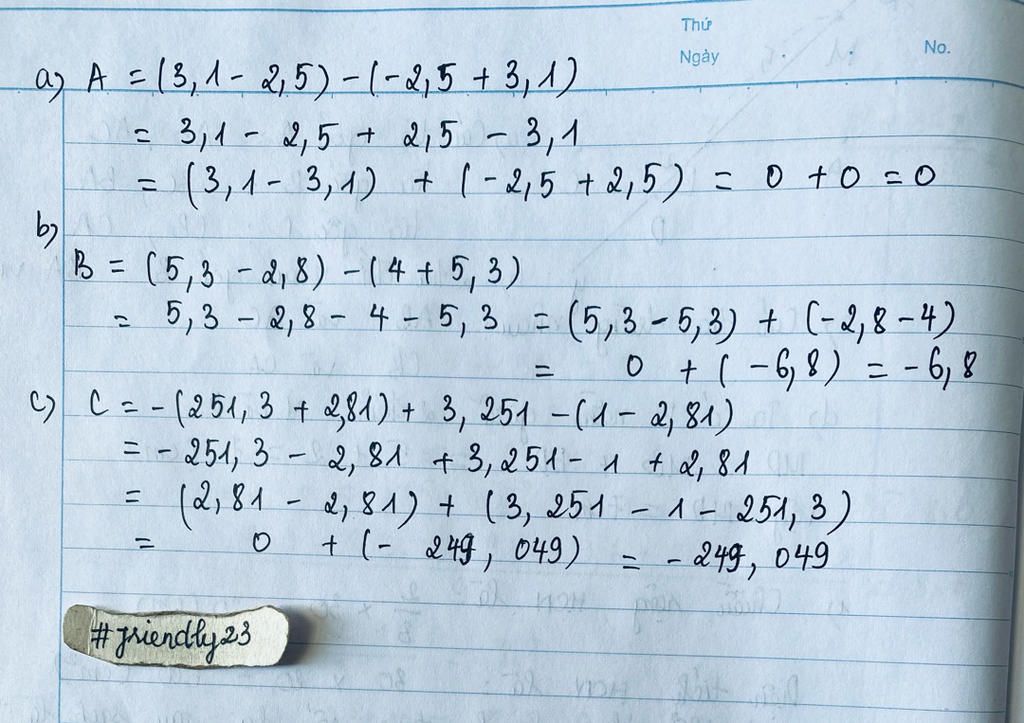 Thứ
Ngày
No.
a) A = (3,1 - 2,5) - (-2,5 + 3,1)
= 3,1 - 2,5 + 2,5 - 3,1
= (3,1 - 3,1) + (-2,5 + 2,5) = 0 + 0 = 0
b)
B = (5,3 - 2,8) - (4 + 5,3)
= 5,3 - 2,8 - 4 - 5,3 = (5,3 - 5,3) + (-2,8 - 4)
= 0 + (-6,8) = -6,8
c) C = -(251,3 + 2,81) + 3,251 - (1 - 2,81)
= -251,3 - 2,81 + 3,251 - 1 + 2,81
= (2,81 - 2,81) + (3,251 - 1 - 251,3)
= 0 + (- 249,049) = - 249,049
#friendly23